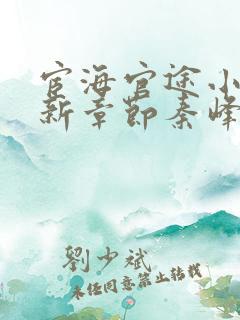 宦海官途小
新章节秦峰
劉少斌
未经同意禁止转载